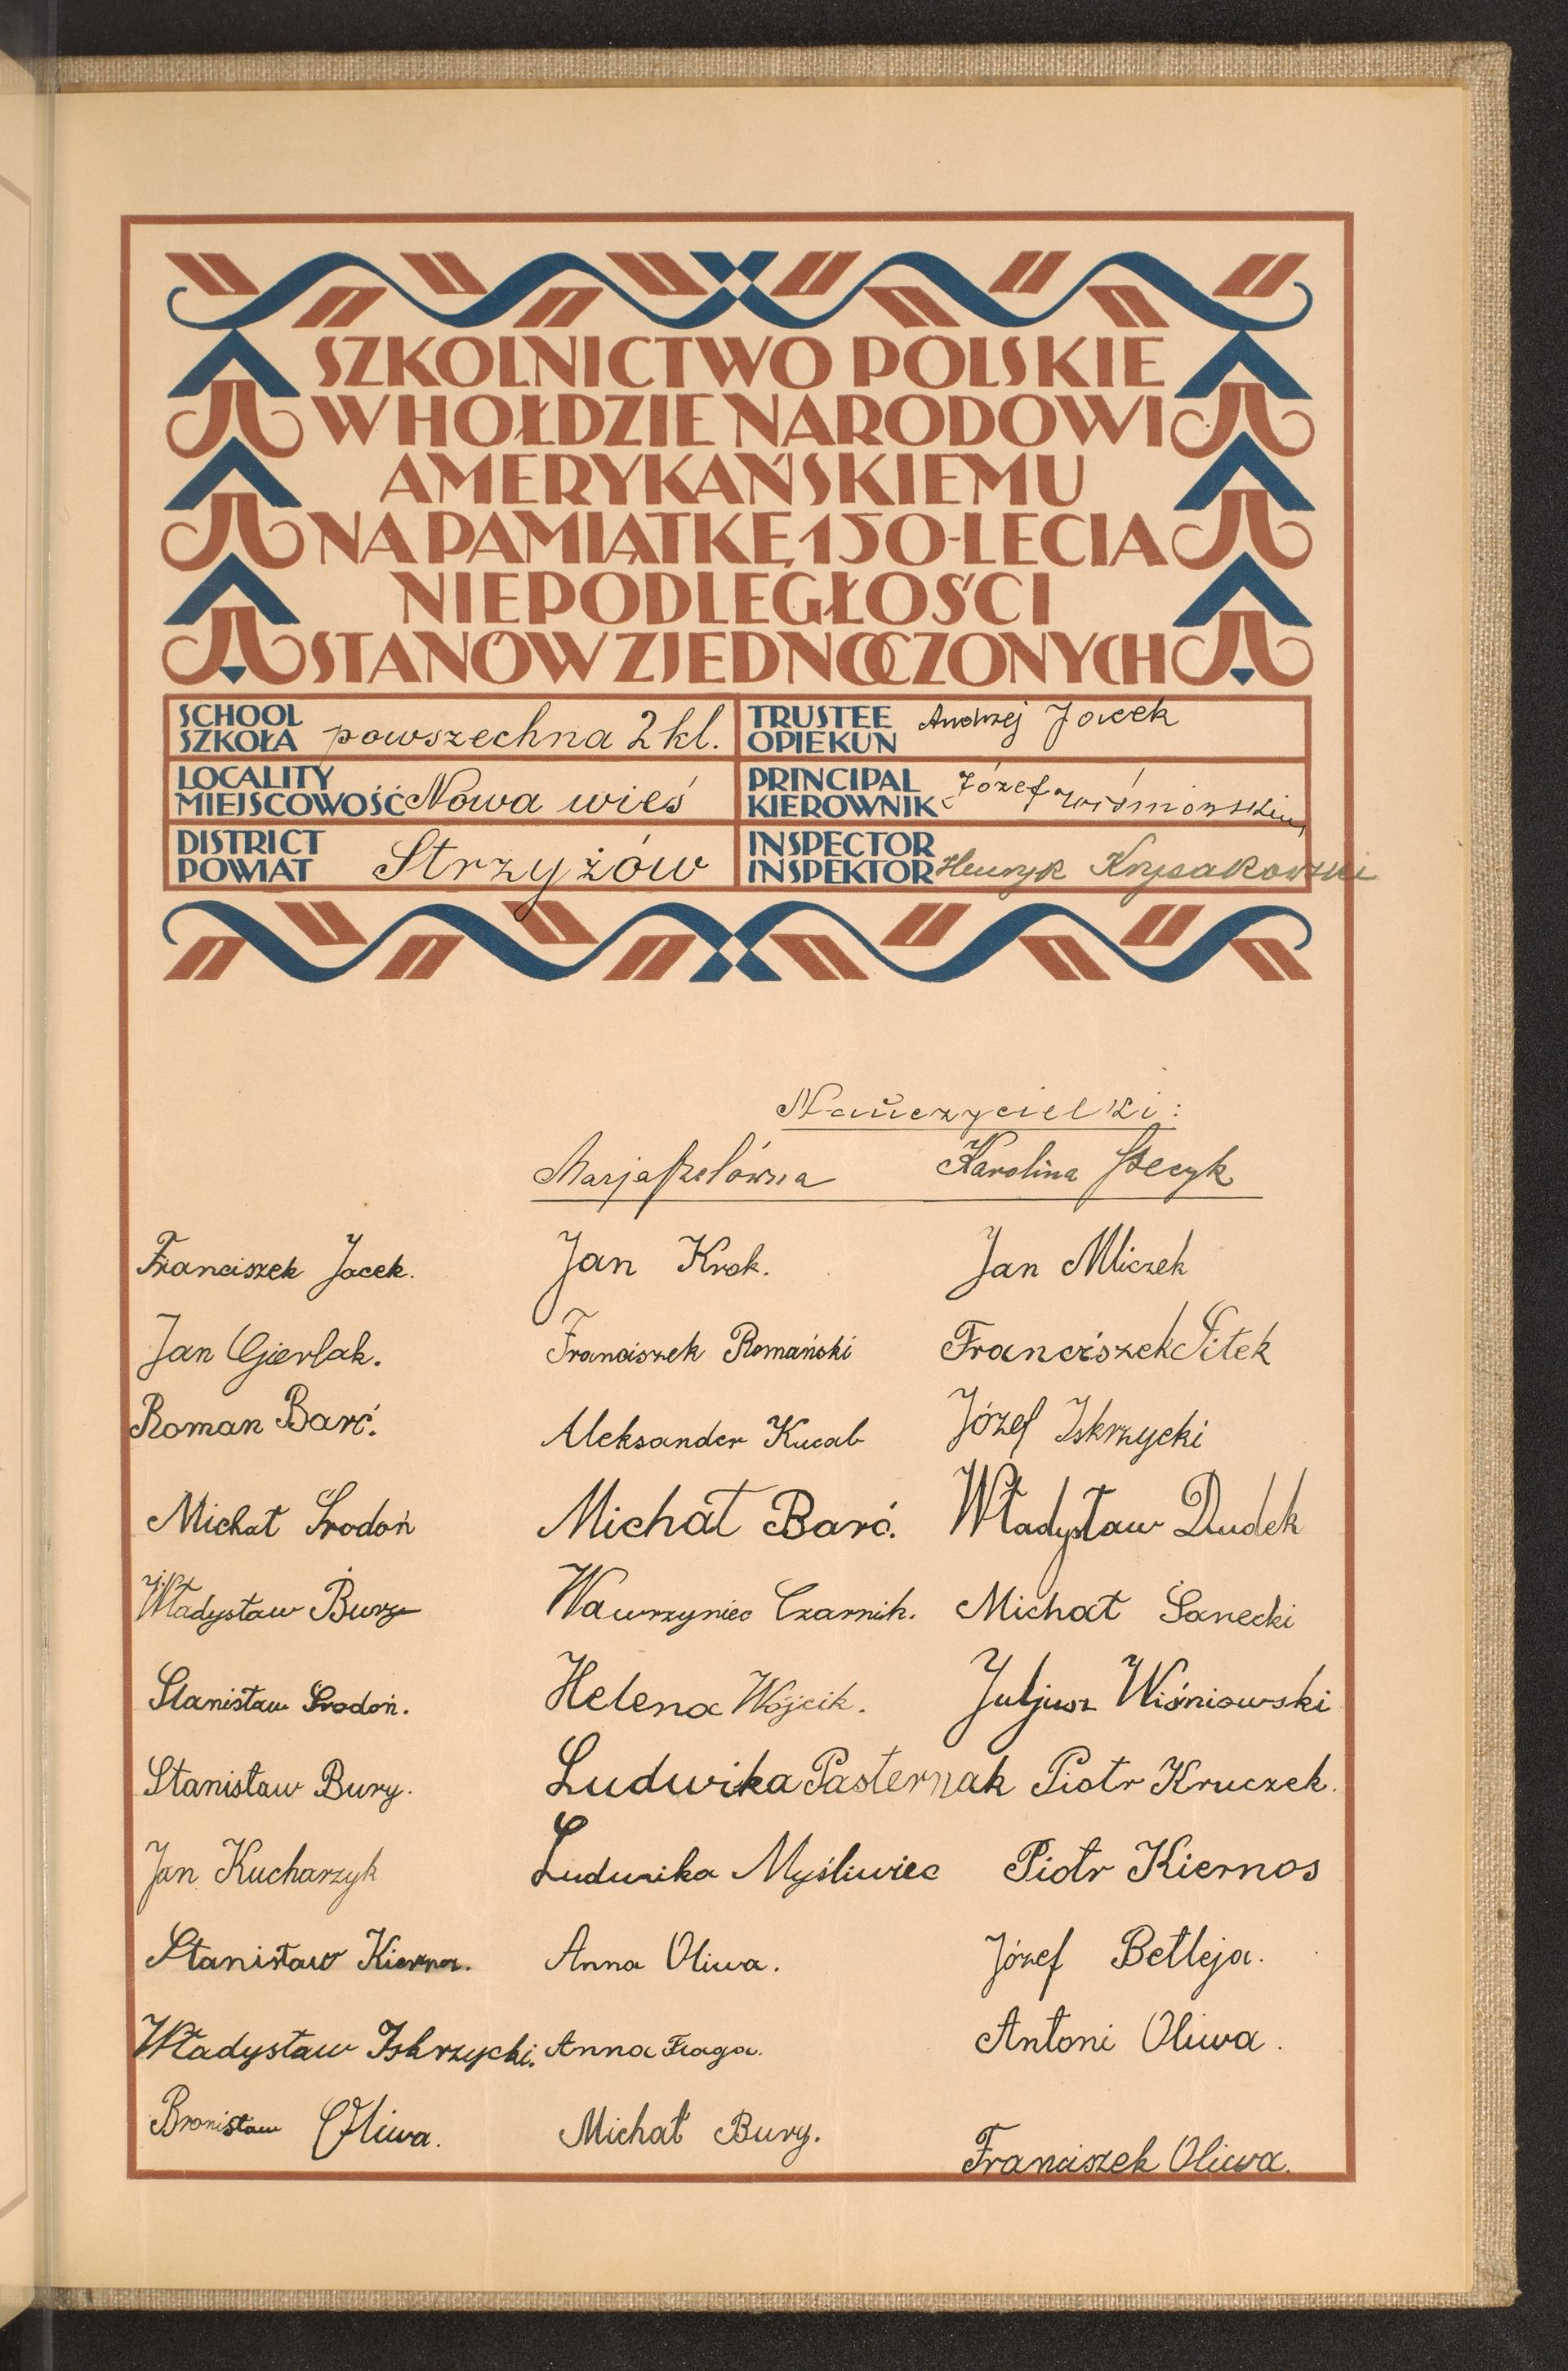 SZKOLNICTWO POLSKIE
W HOŁDZIE NARODOWI
AMERYKAŃSKIEMU
NA PAMIĄTKĘ 150-LECIA
NIEPODLEGŁOŚCI
STANÓW ZJEDNOCZONYCH
SCHOOL
SZKOŁA powszechna 2 kl.
TRUSTEE
OPIEKUN Andrzej Jacek
LOCALITY
MIEJSCOWOŚĆ Nowa wieś
PRINCIPAL
KIEROWNIK Józef Wiśniowski
DISTRICT
POWIAT Strzyżów
INSPECTOR
INSPEKTOR Henryk Krysakowski
Nauczycielki:
Marja Karolina Stecyk
Franciszek Jacek. Jan Krok. Jan Mliczek
Jan Gierlak. Franciszek Romański Franciszek Sitek
Roman Barć. Aleksander Kucab Józef Iskrzycki
Michał Środoń Michał Barć. Władysław Dudek
Władysław Bury Wawrzyniec Czarnik. Michał Sanecki
Stanisław Środoń. Helena Wójcik. Juljusz Wiśniowski
Stanisław Bury. Ludwika Pasternak Piotr Kruczek.
Jan Kucharzyk Ludwika Myśliwiec Piotr Kiernos
Stanisław Anna Oliwa. Józef Betleja.
Władysław Iskrzycki. Anna Fraga. Antoni Oliwa.
Bronisław Oliwa. Michał Bury. Franciszek Oliwa.